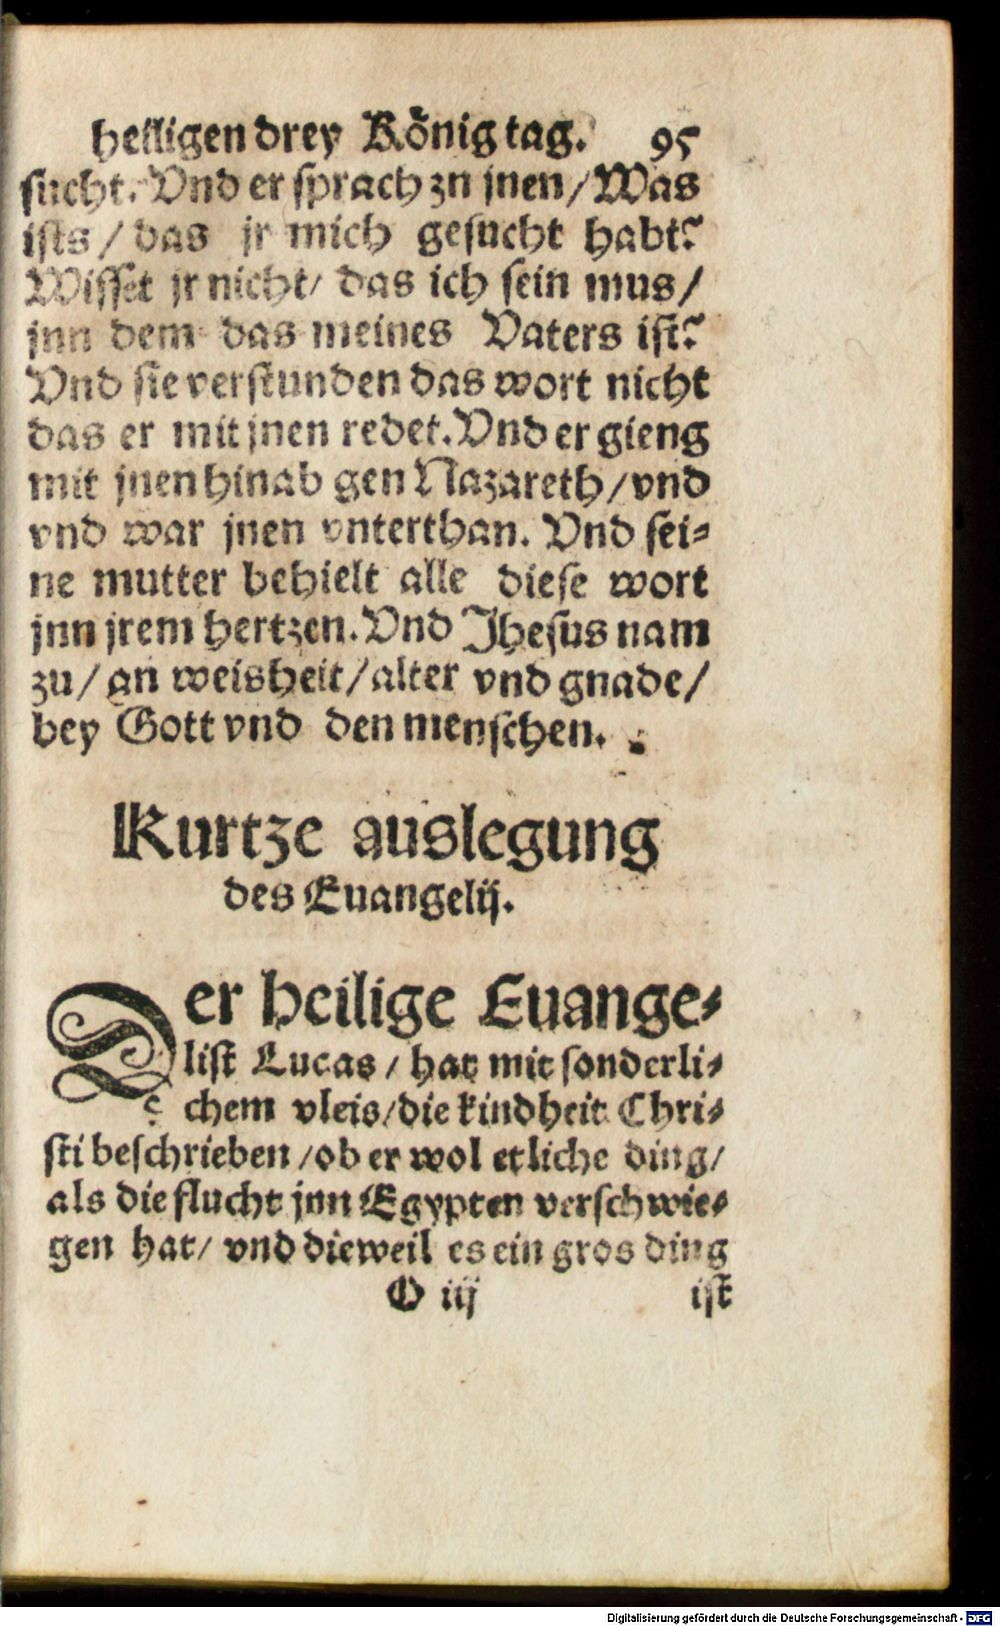 heiligen drey König tag. 95
sucht. Vnd er sprach zn jnen/ Was
ists / das jr mich gesucht habt?
Wisset jr nicht/ das ich sein mus/
jnn dem das meines Vaters ist?
Vnd sie verstunden das wort nicht
das er mit jnen redet. Vnd er gieng
mit jnen hinab gen Nazareth/ vnd
vnd war jnen vnterthan. Vnd sei-
ne mutter behielt alle diese wort
jnn jrem hertzen. Vnd Jhesus nam
zu/ an weisheit/ alter vnd gnade/
bey Gott vnd den menschen.
Kurtze auslegung
des Euangelij.
Der heilige Euange-
list Lucas / hat mit sonderli-
chem vleis/ die kindheit Chri-
sti beschrieben /ob er wol etliche ding/
als die flucht jnn Egypten verschwie-
gen hat/ vnd dieweil es ein gros ding
O iij ist
Digitalisierung gefördert durch die Deutsche Forschungsgemeinschaft - DFG